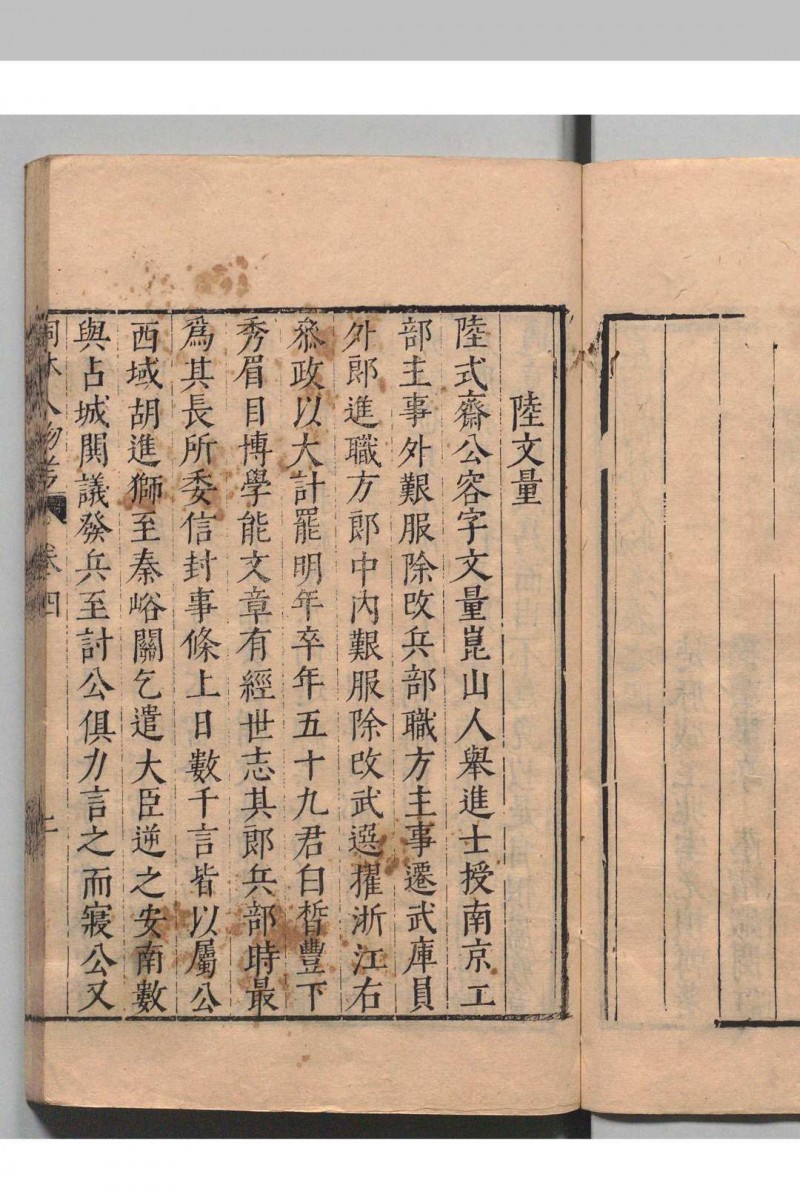 陸文量
陸式齋公容字文量崑山人舉進士授南京工
部主事外艱服除改兵部職方主事遷武庫員
外郎進職方郎中內艱服除改武選擢浙江右
叅政以大計罷明年卒年五十九君白晳豐下
秀眉目博學能文章有經世志其郎兵部時最
爲其長所委信封事條上日數千言皆以屬公
西域胡進獅至秦峪關乞遣大臣逆之安南數
與占城鬨議發兵至討公俱力言之而寢公又
人物考 卷四